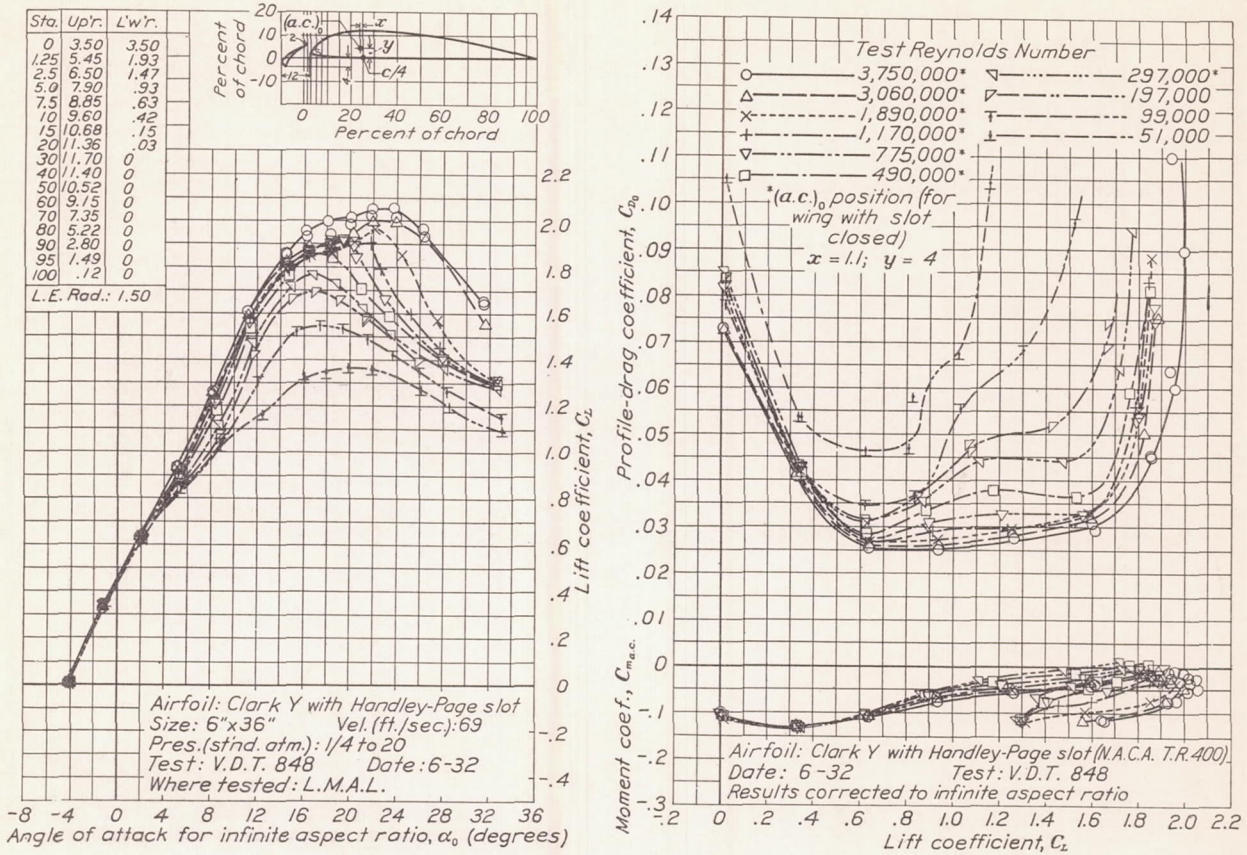 Sta. Up'r. L'w'r.
0 3.50 3.50
1.25 5.45 1.93
2.5 6.50 1.47
5.0 7.90 .93
7.5 8.85 .63
10 9.60 .42
15 10.68 .15
20 11.36 .03
30 11.70 0
40 11.40 0
50 10.52 0
60 9.15 0
70 7.35 0
80 5.22 0
90 2.80 0
95 1.49 0
100 .12 0
L.E. Rad.: 1.50
Percent of chord
20
10
0
-10
(a.c.)₀
x
y
2
12
4
c/4
0 20 40 60 80 100
Percent of chord
2.2
2.0
1.8
1.6
1.4
1.2
1.0
.8
.6
.4
.2
0
-.2
-.4
Lift coefficient, C_L
Airfoil: Clark Y with Handley-Page slot
Size: 6"x36" Vel.(ft./sec.):69
Pres.(st'nd. atm.): 1/4 to 20
Test: V.D.T. 848 Date: 6-32
Where tested: L.M.A.L.
-8 -4 0 4 8 12 16 20 24 28 32 36
Angle of attack for infinite aspect ratio, α₀ (degrees)
.14
.13
.12
.11
.10
.09
.08
.07
.06
.05
.04
.03
.02
.01
0
-.1
-.2
-.3
Profile-drag coefficient, C_D₀
Moment coef., C_m a.c.
Test Reynolds Number
3,750,000* 297,000*
3,060,000* 197,000
1,890,000* 99,000
1,170,000* 51,000
775,000*
490,000*
*(a.c.)₀ position (for
wing with slot
closed)
x = 1.1; y = 4
Airfoil: Clark Y with Handley-Page slot (N.A.C.A. T.R.400)
Date: 6-32 Test: V.D.T. 848
Results corrected to infinite aspect ratio
-.2 0 .2 .4 .6 .8 1.0 1.2 1.4 1.6 1.8 2.0 2.2
Lift coefficient, C_L